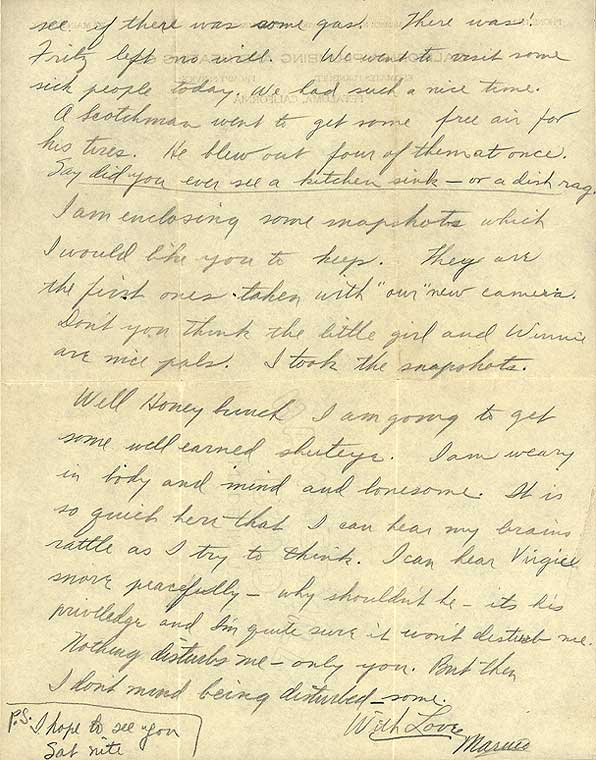 see if there was some gas. There was!
Fritz left no will. We went to visit some
sick people today. We had such a nice time.
A Scotchman went to get some free air for
his tires. He blew out four of them at once.
Say did you ever see a kitchen sink – or a dish rag.
I am enclosing some snapshots which
I would like you to keep. They are
the first ones taken with "our" new camera.
Don't you think the little girl and Winnie
are nice pals. I took the snapshots.
Well Honey bunch I am going to get
some well earned shuteye. I am weary
in body and mind and lonesome. It is
so quiet here that I can hear my brains
rattle as I try to think. I can hear Virgil
snore peacefully – why shouldn't he – its his
priviledge and I'm quite sure it won't disturb me.
Nothing disturbs me – only you. But then
I don't mind being disturbed – some.
With Love
P.S. I hope to see you
Sat nite